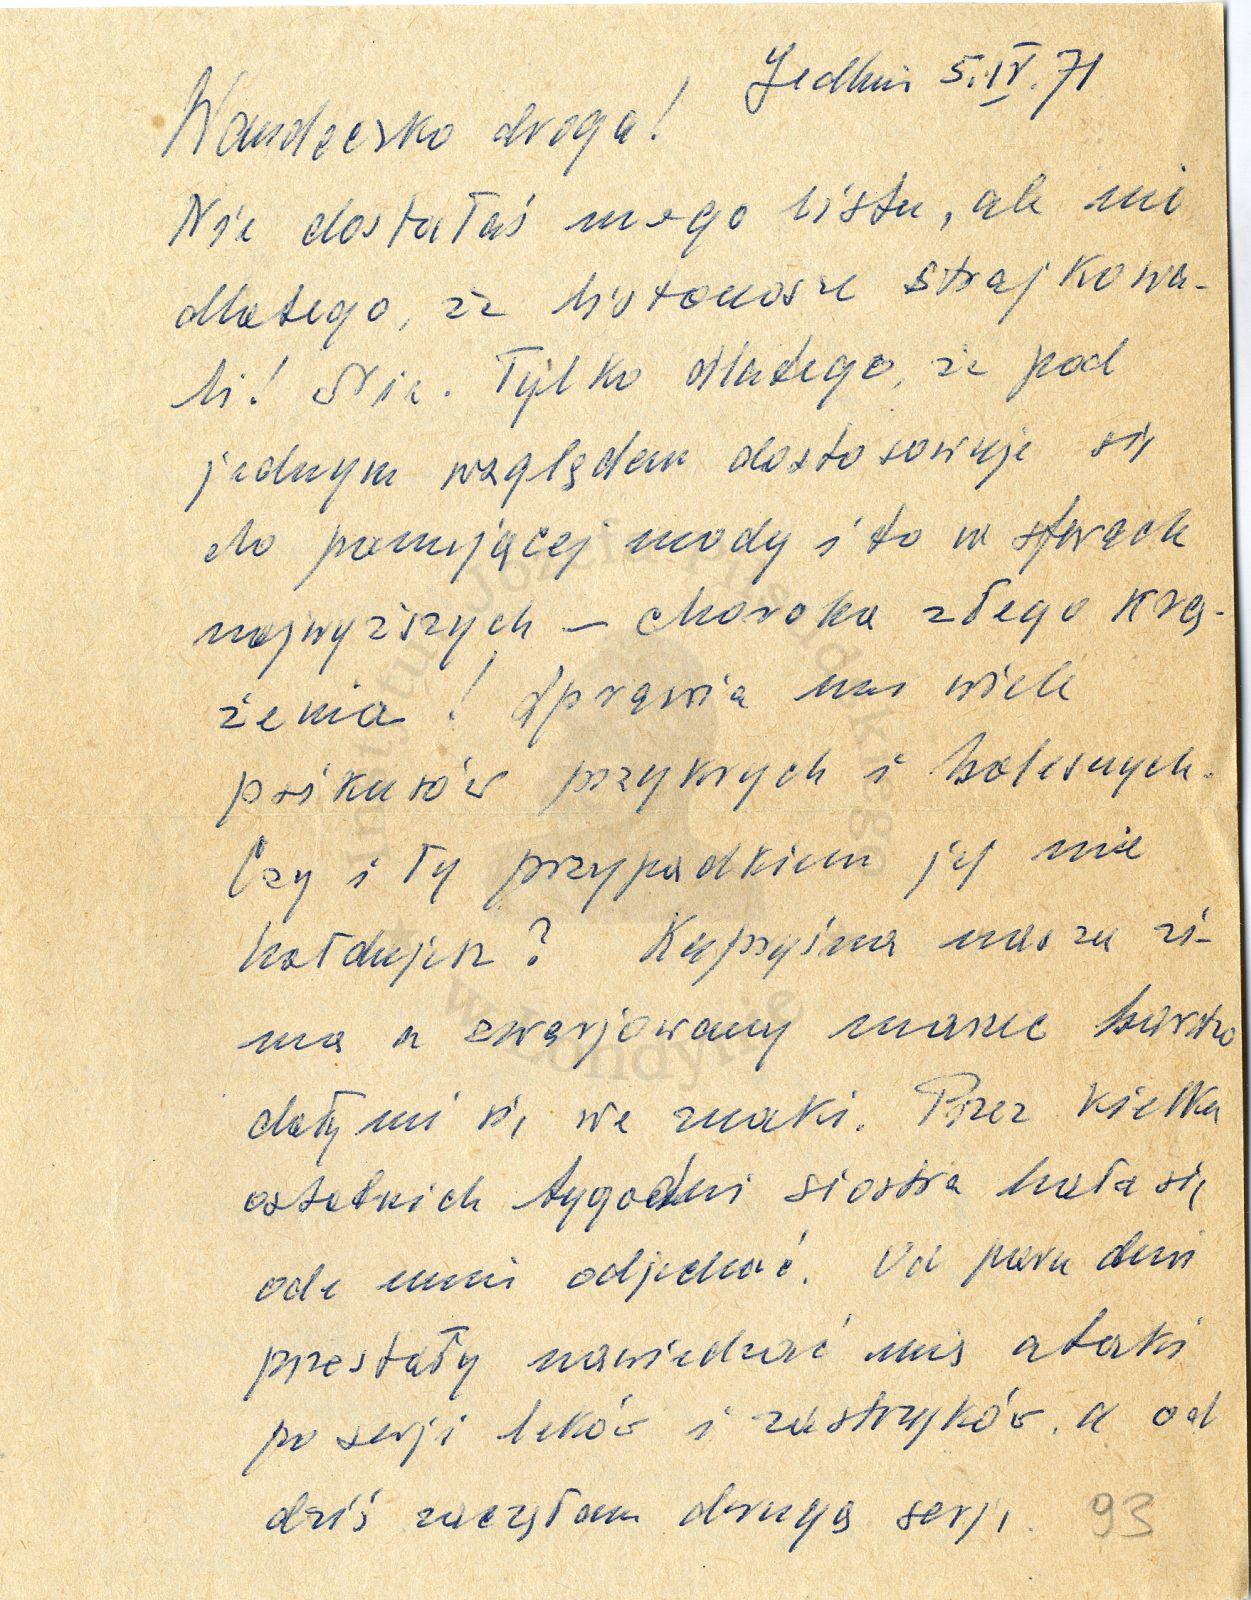 Jedlnia 5.IV.71
Wandeczko droga!
Nie dostałaś mego listu, ale nie
dlatego, że listonosze strajkowa-
li! Nie. Tylko dlatego, że pod
jednym względem dostosowuję się
do panującej mody i to w sferach
najwyższych – choroba złego krą-
żenia! Sprawia mi wiele
psikusów przykrych i bolesnych.
Czy i Ty przypadkiem jej nie
hołdujesz? Kapryśna nasza zi-
ma a zwarjowany marzec bardzo
dały mi się we znaki. Przez kielka
ostatnich tygodni siostra bała się
ode mnie odjechać. Od paru dni
przestały nawiedzać mię ataki
po serji leków i zastrzyków. A od
dziś zaczęłam drugą serję.
93
Instytut Józefa Piłsudskiego
w Londynie